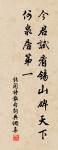 今君試看錫山碑天下
何泉居第一